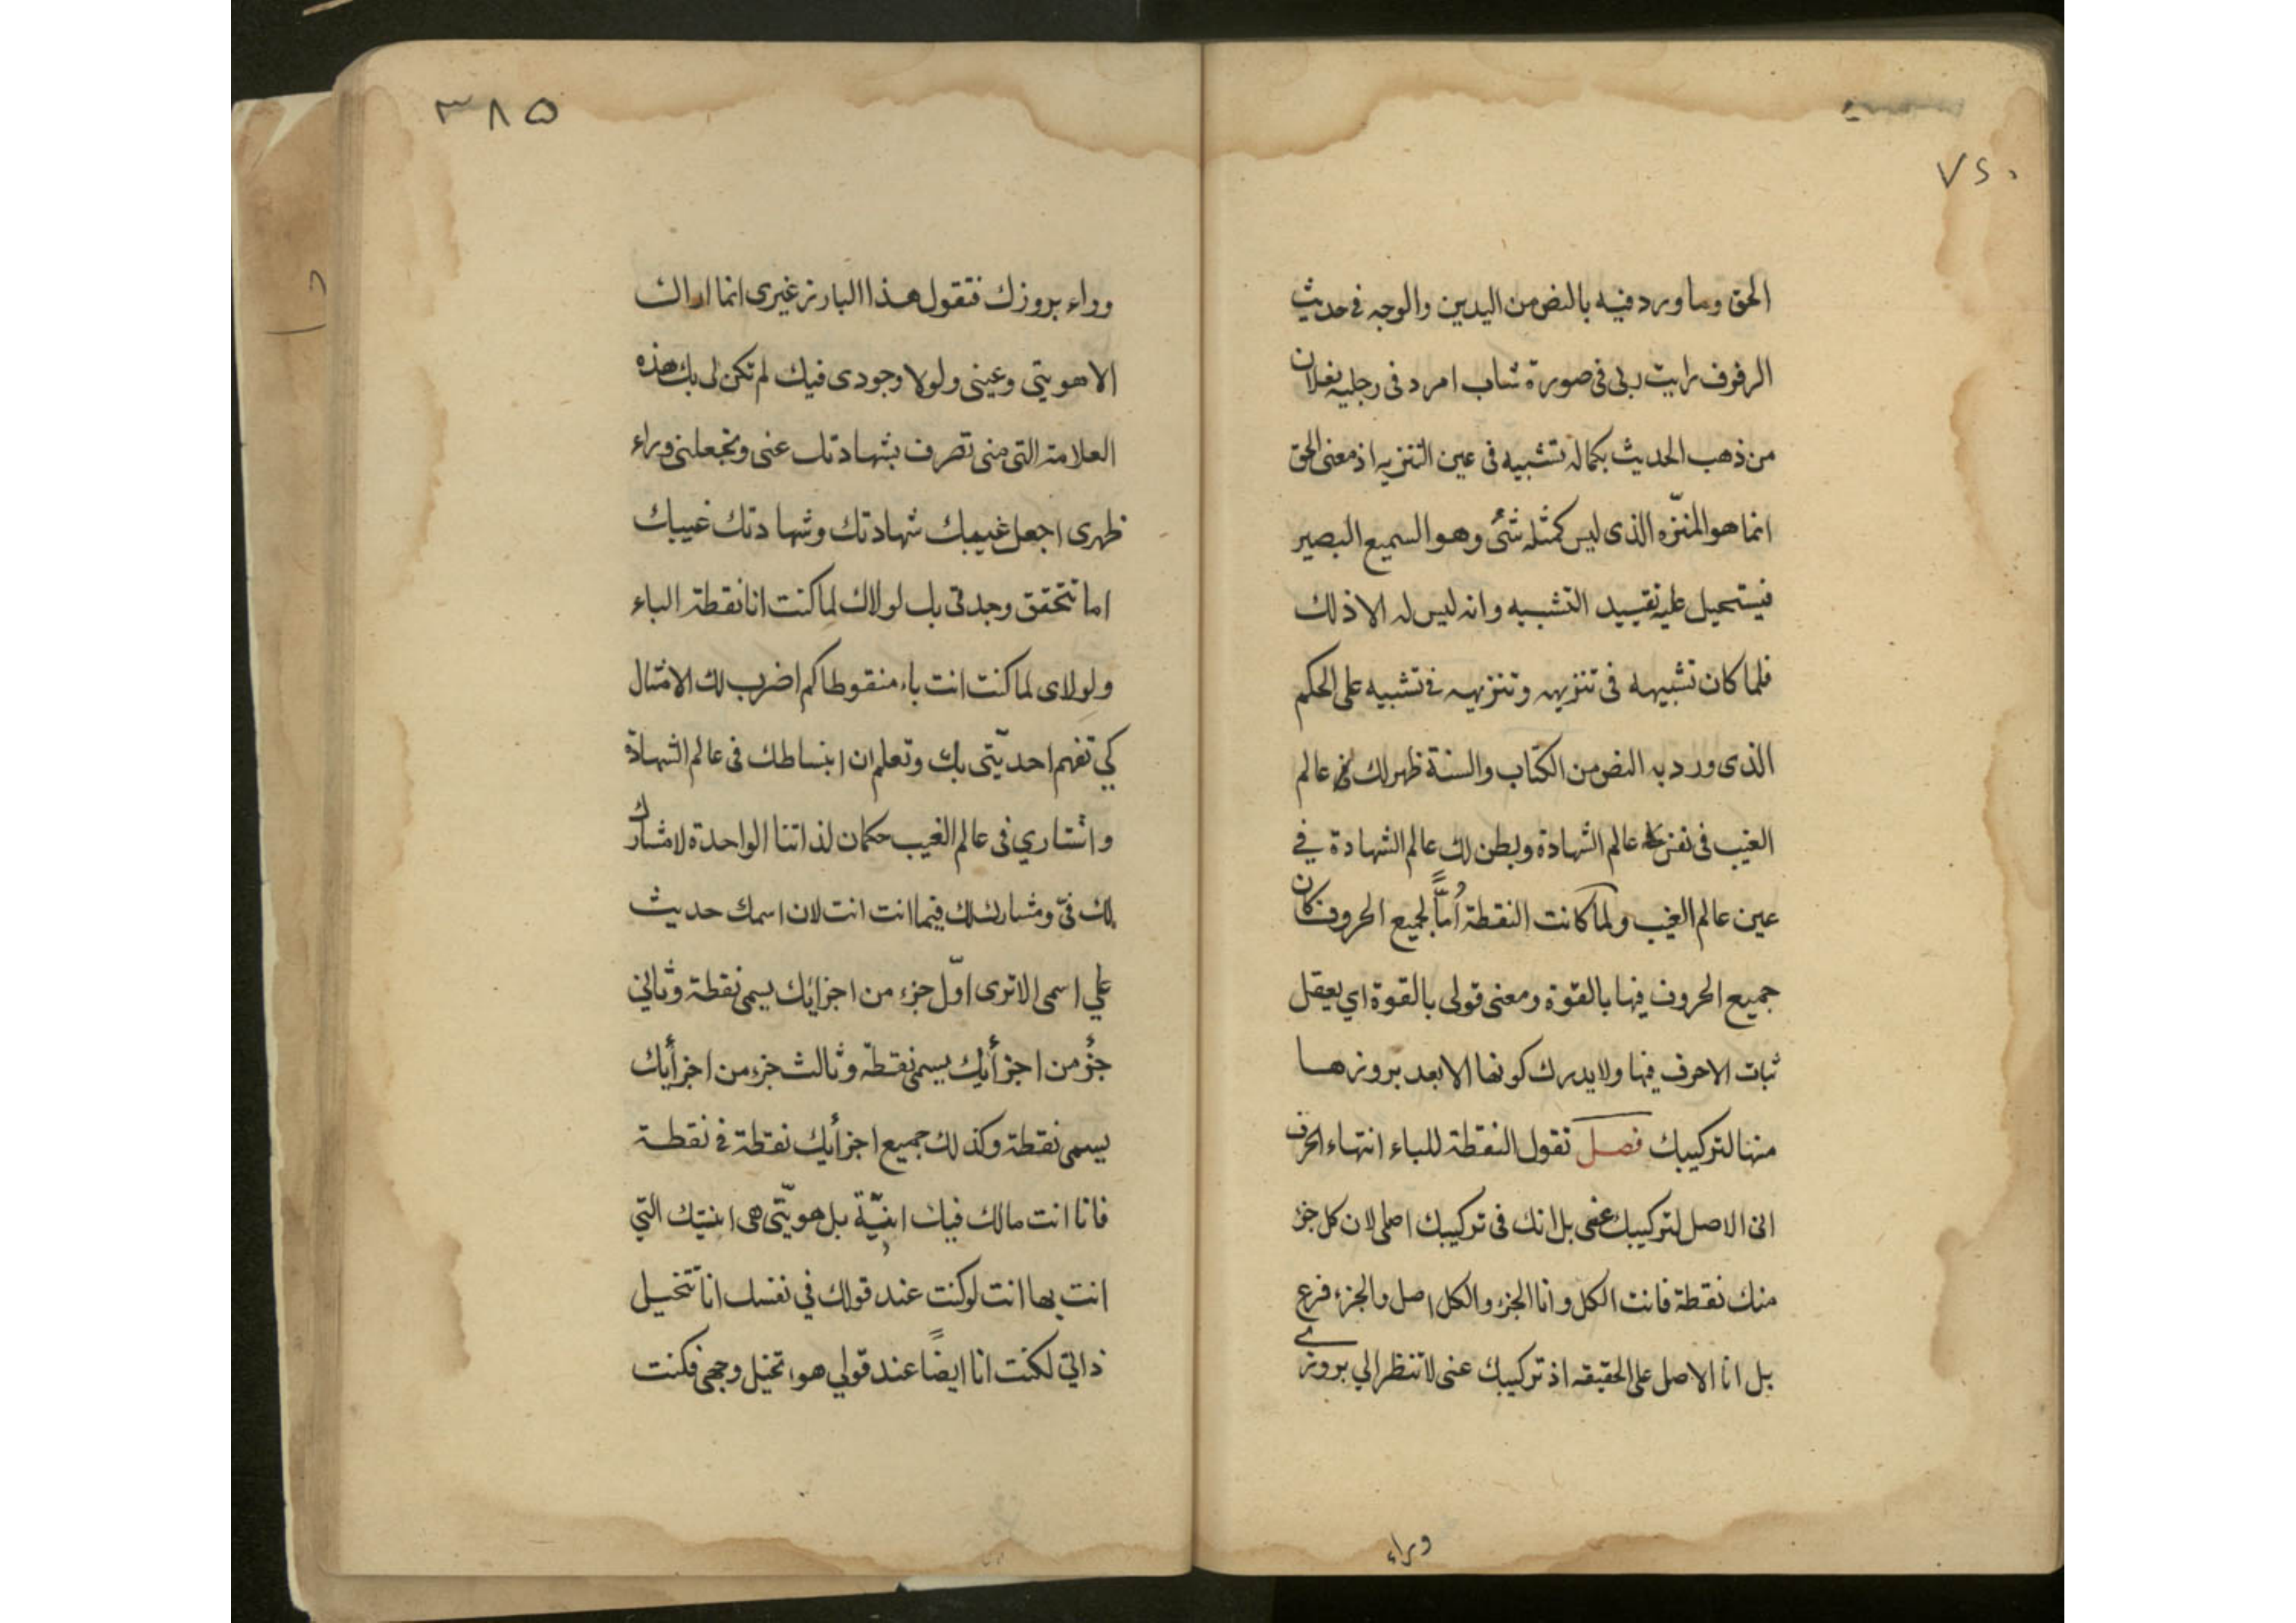 ٧٢٠
الحق وما ورد فيه بالنص من اليدين والوجه في حديث
الرفرف رايت ربى فى صورة شاب امرد فى رجليه نعلان
من ذهب الحديث بكماله تشبيه فى عين التنزيه اذ معنى الحق
انما هو المنزّه الذى ليس كمثله شئ وهو السميع البصير
فيستحيل عليه تقييد التشبيه وانه ليس له الا ذلك
فلما كان تشبيهه فى تنزيهه وتنزيهه في تشبيه على الحكم
الذى ورد به النص من الكتاب والسنة ظهر لك في عالم
الغيب فى نفس عالم الشهادة وبطن لك عالم الشهادة في
عين عالم الغيب ولما كانت النقطة اُمًّا لجميع الحروف كان
جميع الحروف فيها بالقوة ومعنى قولى بالقوة اي يعقل
ثبات الاحرف فيها ولا يدرك كونها الا بعد بروزها
منها لتركيبك فصل تقول النقطة للباء انتهاء الحرف
انى الاصل لتركيبك عنى بل انك فى تركيبك اصلى لان كل جزء
منك نقطة فانت الكل وانا الجزء والكل اصل والجزء فرع
بل انا الاصل على الحقيقه اذ تركيبك عنى لا تنظر الي بروزي
وراء
٣٨٥
وراء بروزك فتقول هذا البارز غيرى انما اراك
الا هويتى وعينى ولولا وجودى فيك لم تكن لى بك هذه
العلامة التى منى تصرف بشهادتك عنى وتجعلنى وراء
ظهرى اجعل غيبك شهادتك وشهادتك غيبك
اما تتحقق وحدتى بك لولاك لما كنت انا نقطة الباء
ولولاى لما كنت انت باء منقوطا كم اضرب لك الامثال
كي تفهم احديّتى بك وتعلم ان انبساطك فى عالم الشهادة
وانتشاري فى عالم الغيب حكمان لذاتنا الواحدة لا مشارك
لك فىّ ومشارك لك فيما انت انت لان اسمك حديث
علي اسمى الا ترى اوّل جزء من اجزايك يسمى نقطة وثاني
جزؤ من اجزأيك يسمى نقطة وثالث جزء من اجزأيك
يسمى نقطة وكذلك جميع اجزأيك نقطة في نقطة
فانا انت مالك فيك انيّة بل هويّتى هى انيتك التي
انت بها انت لو كنت عند قولك في نفسك انا تتخيل
ذاتي لكنت انا ايضًا عند قولي هو اتخيل وجهى فكنت